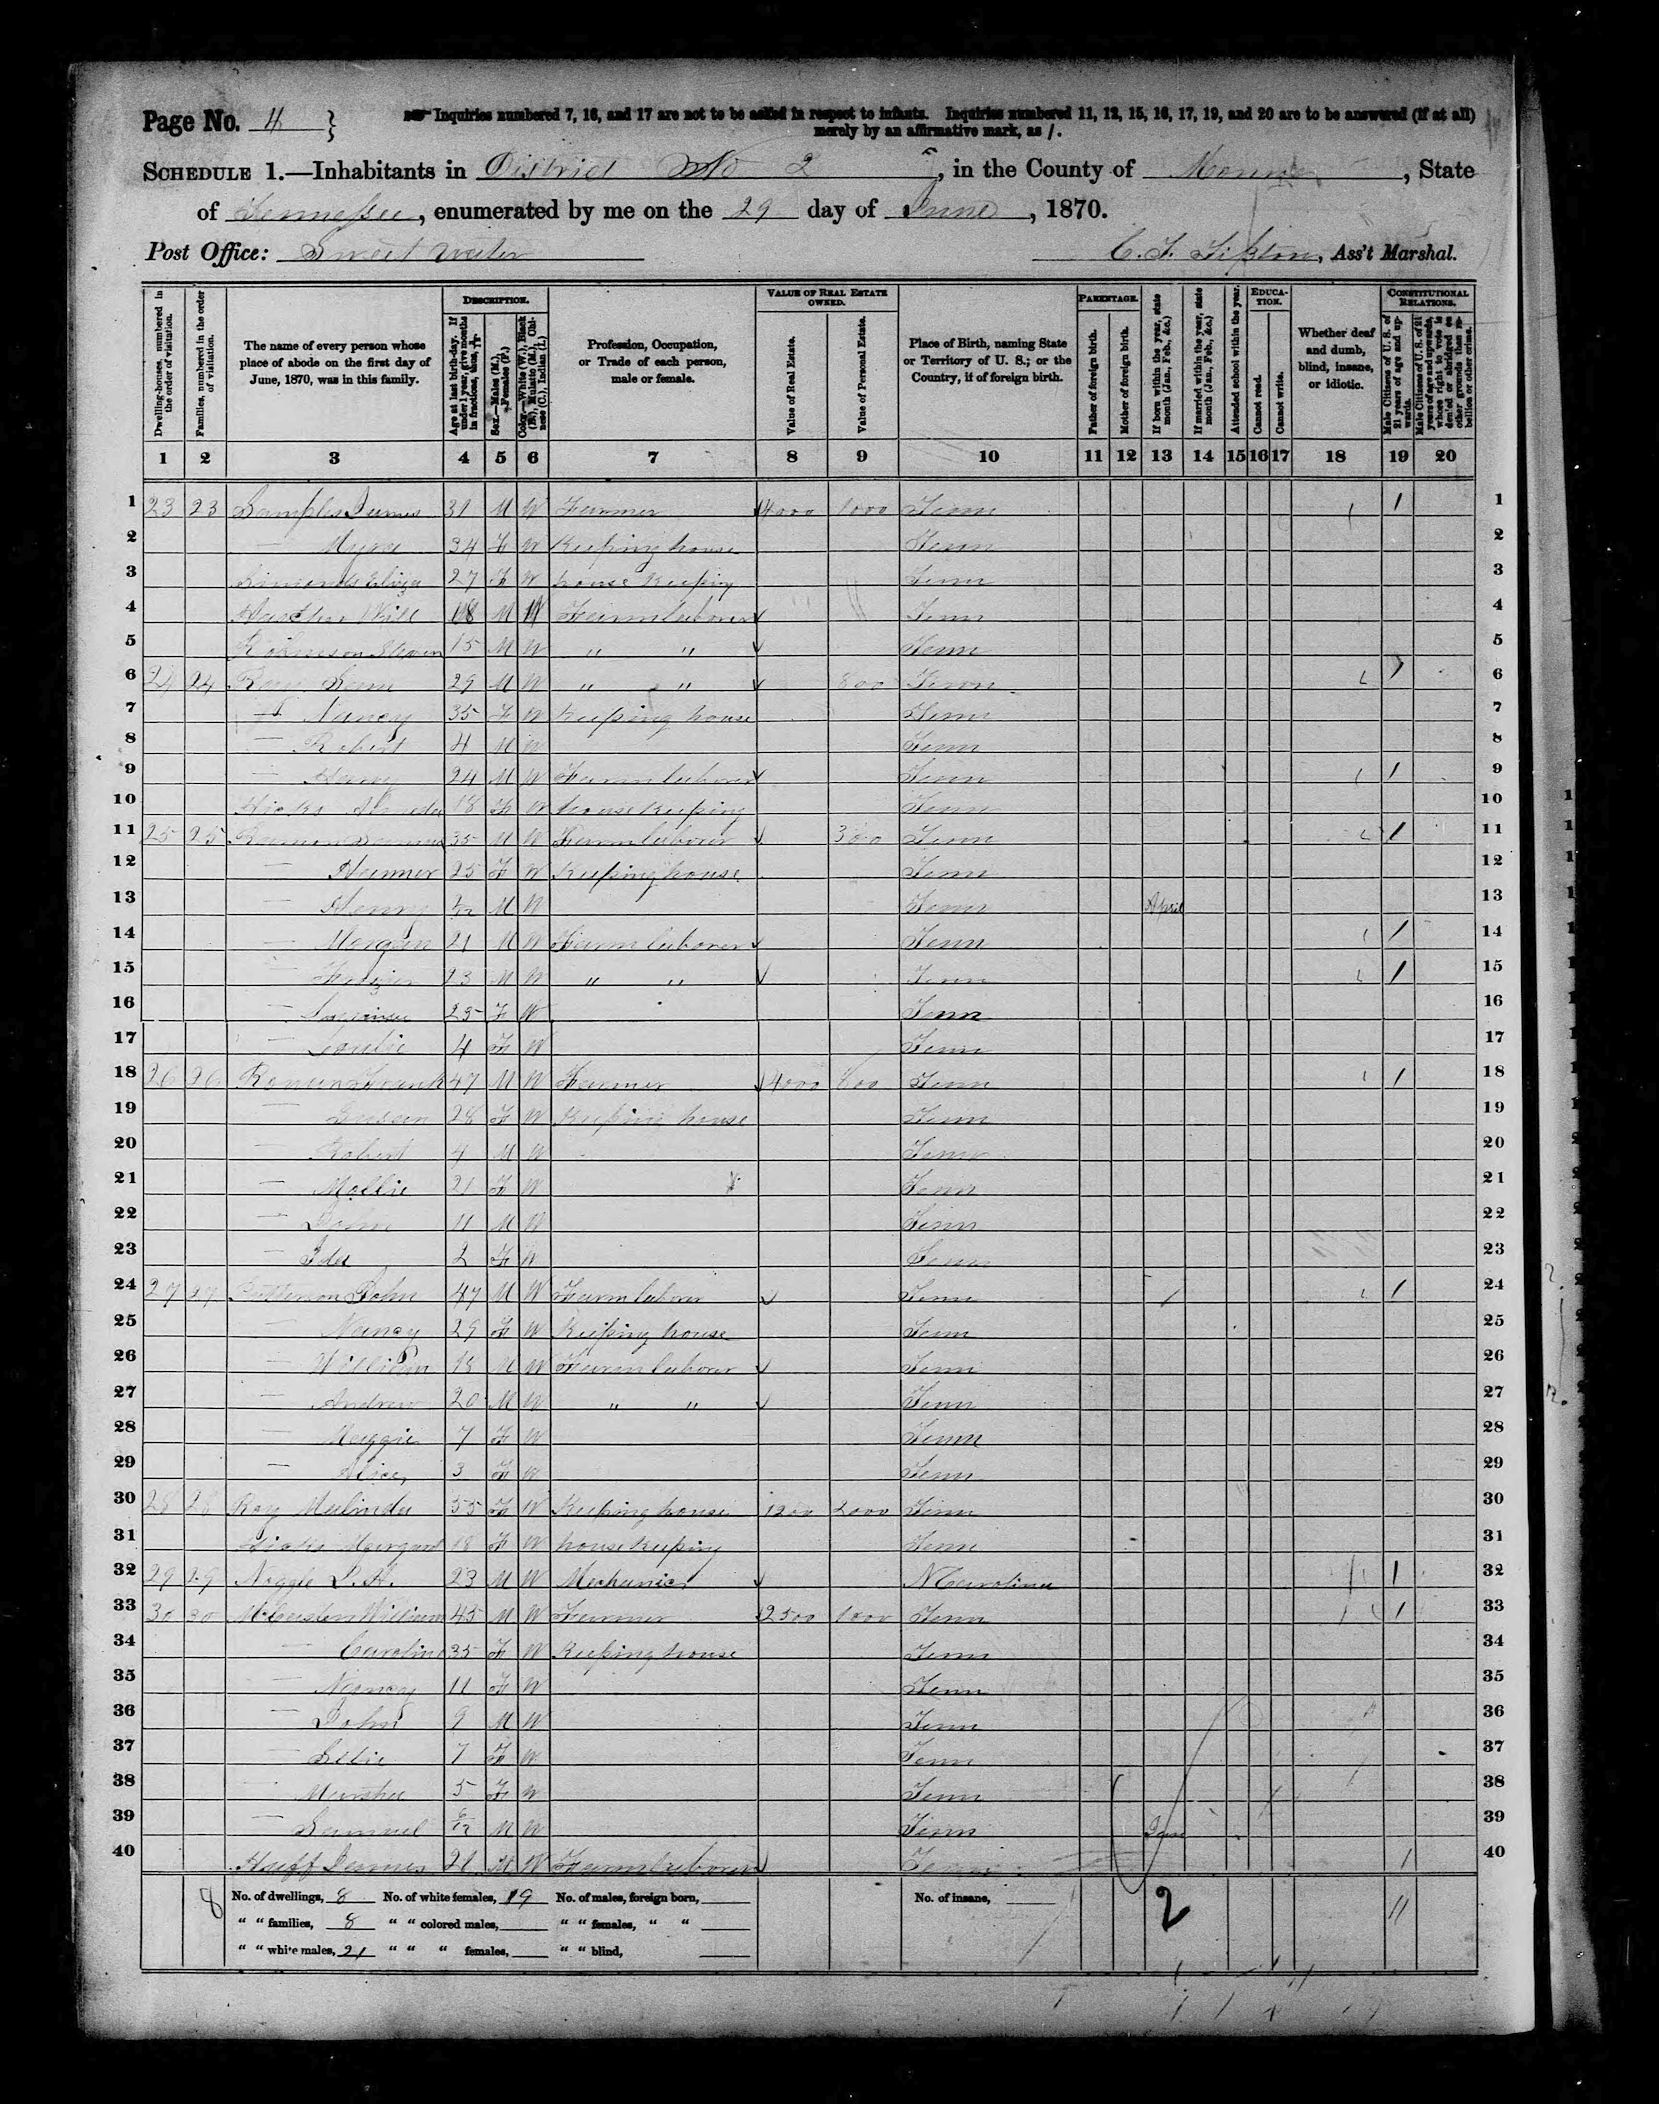 Page No. 4
Inquiries numbered 7, 16, and 17 are not to be asked in respect to infants. Inquiries numbered 11, 12, 15, 16, 17, 19, and 20 are to be answered (if at all)
merely by an affirmative mark, as /.
SCHEDULE 1.—Inhabitants in District No 2, in the County of Monroe, State
of Tennessee, enumerated by me on the 29 day of June, 1870.
Post Office: Sweet water C. F. Tipton, Ass't Marshal.
Dwelling-houses, numbered in the order of visitation.
Families, numbered in the order of visitation.
The name of every person whose place of abode on the first day of June, 1870, was in this family.
DESCRIPTION.
Age at last birth-day. If under 1 year, give months in fractions, thus, 3/12.
Sex.—Males (M.), Females (F.)
Color.—White (W.), Black (B.), Mulatto (M.), Chinese (C.), Indian (I.)
Profession, Occupation, or Trade of each person, male or female.
VALUE OF REAL ESTATE OWNED.
Value of Real Estate.
Value of Personal Estate.
Place of Birth, naming State or Territory of U. S.; or the Country, if of foreign birth.
PARENTAGE.
Father of foreign birth.
Mother of foreign birth.
If born within the year, state month (Jan., Feb., &c.)
If married within the year, state month (Jan., Feb., &c.)
Attended school within the year.
EDUCATION.
Cannot read.
Cannot write.
Whether deaf and dumb, blind, insane, or idiotic.
CONSTITUTIONAL RELATIONS.
Male Citizens of U. S. of 21 years of age and upwards.
Male Citizens of U. S. of 21 years of age and upwards, whose right to vote is denied or abridged on other grounds than rebellion or other crime.
1 2 3 4 5 6 7 8 9 10 11 12 13 14 15 16 17 18 19 20
1 23 23 Samples James 31 M W Farmer 4000 1000 Tenn / 1
2 — Myra 34 F W Keeping house Tenn 2
3 Simonds Eliza 27 F W house Keeping Tenn 3
4 Will 18 M Farm laborer Tenn 4
5 Robinson 15 M W " " Tenn 5
6 24 24 Ray Sam 29 M W " " 800 Tenn / 6
7 — Nancy 35 F W Keeping house Tenn 7
8 — Robert 4 M W Tenn 8
9 — 24 M W Farm laborer Tenn / 9
10 Hicks 18 F W house Keeping Tenn 10
11 25 25 35 M W Farm laborer 300 Tenn / 11
12 — 25 F W Keeping house Tenn 12
13 — Henry M W Tenn April 13
14 — Morgan 21 M W Farm laborer Tenn / 14
15 — Frazier 23 M W " " Tenn / 15
16 — 25 F W Tenn 16
17 — 4 F W Tenn 17
18 26 26 Frank 47 M W Farmer 4000 Tenn / 18
19 — Susan 28 F W Keeping house Tenn 19
20 — Robert 4 M W Tenn 20
21 — Mollie 21 F W Tenn 21
22 — John 11 M W Tenn 22
23 — Ida 2 F W Tenn 23
24 27 27 Patterson John 47 M W Farm laborer Tenn / 24
25 — Nancy 29 F W Keeping house Tenn 25
26 — William 18 M W Farm laborer Tenn 26
27 — Andrew 20 M W " " Tenn 27
28 — Maggie 7 F W Tenn 28
29 — Alice 3 F W Tenn 29
30 28 28 Ray Malinda 55 F W Keeping house 1200 2000 Tenn 30
31 Hicks Margaret 18 F W house Keeping Tenn 31
32 29 29 Noggle 23 M W Mechanic N Carolina / 32
33 30 30 William 45 M W Farmer 2500 1000 Tenn / 33
34 — Caroline 35 F W Keeping house Tenn 34
35 — Nancy 11 F W Tenn 35
36 — John 9 M W Tenn 36
37 — 7 F W Tenn 37
38 — Marsha 5 F W Tenn 38
39 — Samuel M W Tenn Jan 39
40 Huff James 21 M W Farm laborer Tenn / 40
8 No. of dwellings, 8 No. of white females, 19 No. of males, foreign born, No. of insane, 2 11
" " families, 8 " " colored males, " " females, " "
" " white males, 21 " " " females, " " blind,